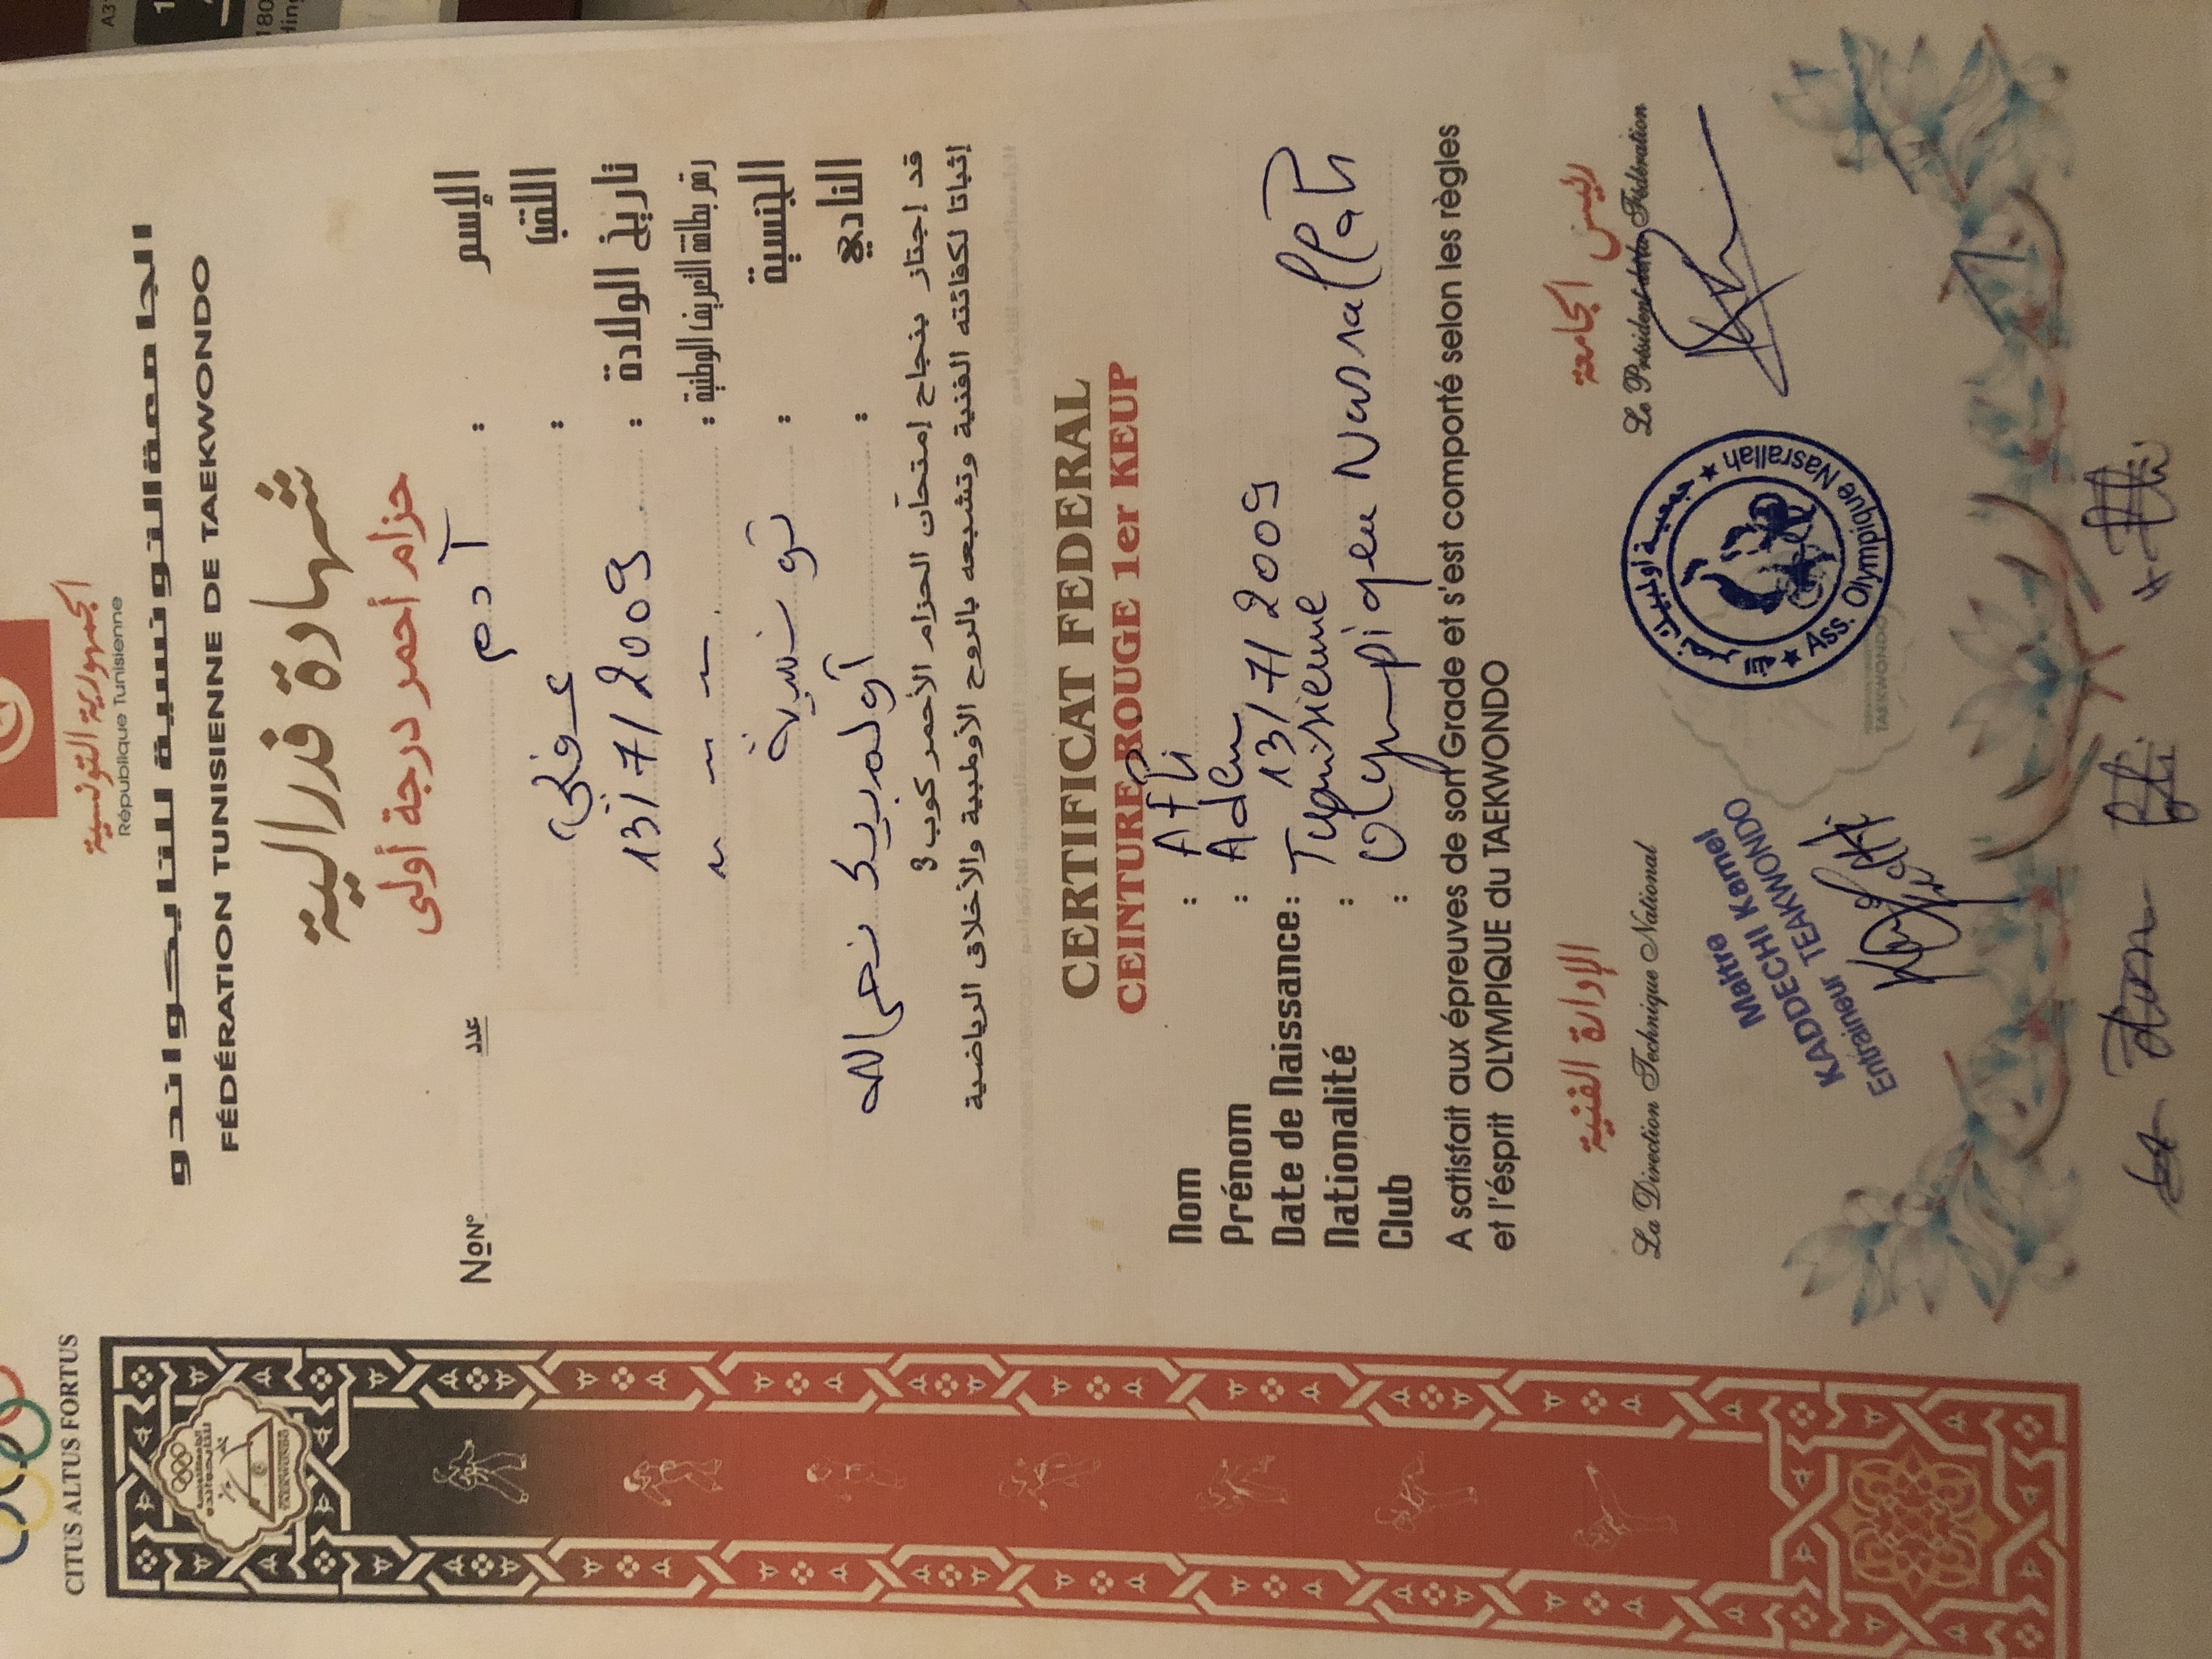 CITUS ALTUS FORTUS
الجمهورية التونسية
République Tunisienne
الجامعة التونسية للتايكواندو
FÉDÉRATION TUNISIENNE DE TAEKWONDO
شهادة فدرالية
حزام أحمر درجة أولى
NoN° عدد
الإسم : آدم
اللقب :
تاريخ الولادة : 13/7/2009
رقم بطاقة التعريف الوطنية :
الجنسية : تونسية
النادي : أولمبيك نصرالله
قد إجتاز بنجاح إمتحان الحزام الأحمر كوب 3
إثباتا لكفائته الفنية وتشبعه بالروح الأولمبية والأخلاق الرياضية
CERTIFICAT FEDERAL
CEINTURE ROUGE 1er KEUP
Nom : Afli
Prénom : Adem
Date de Naissance : 13/7/2009
Nationalité : Tunisienne
Club : Olympique Nasrallah
A satisfait aux épreuves de son Grade et s'est comporté selon les règles
et l'ésprit OLYMPIQUE du TAEKWONDO
الإدارة الفنية رئيس الجامعة
La Direction Technique National Le Président de la Fédération
Maître
KADDECHI Kamel
Entraineur TEAKWONDO
جمعية أولمبيك نصر الله
Ass. Olympique Nasrallah